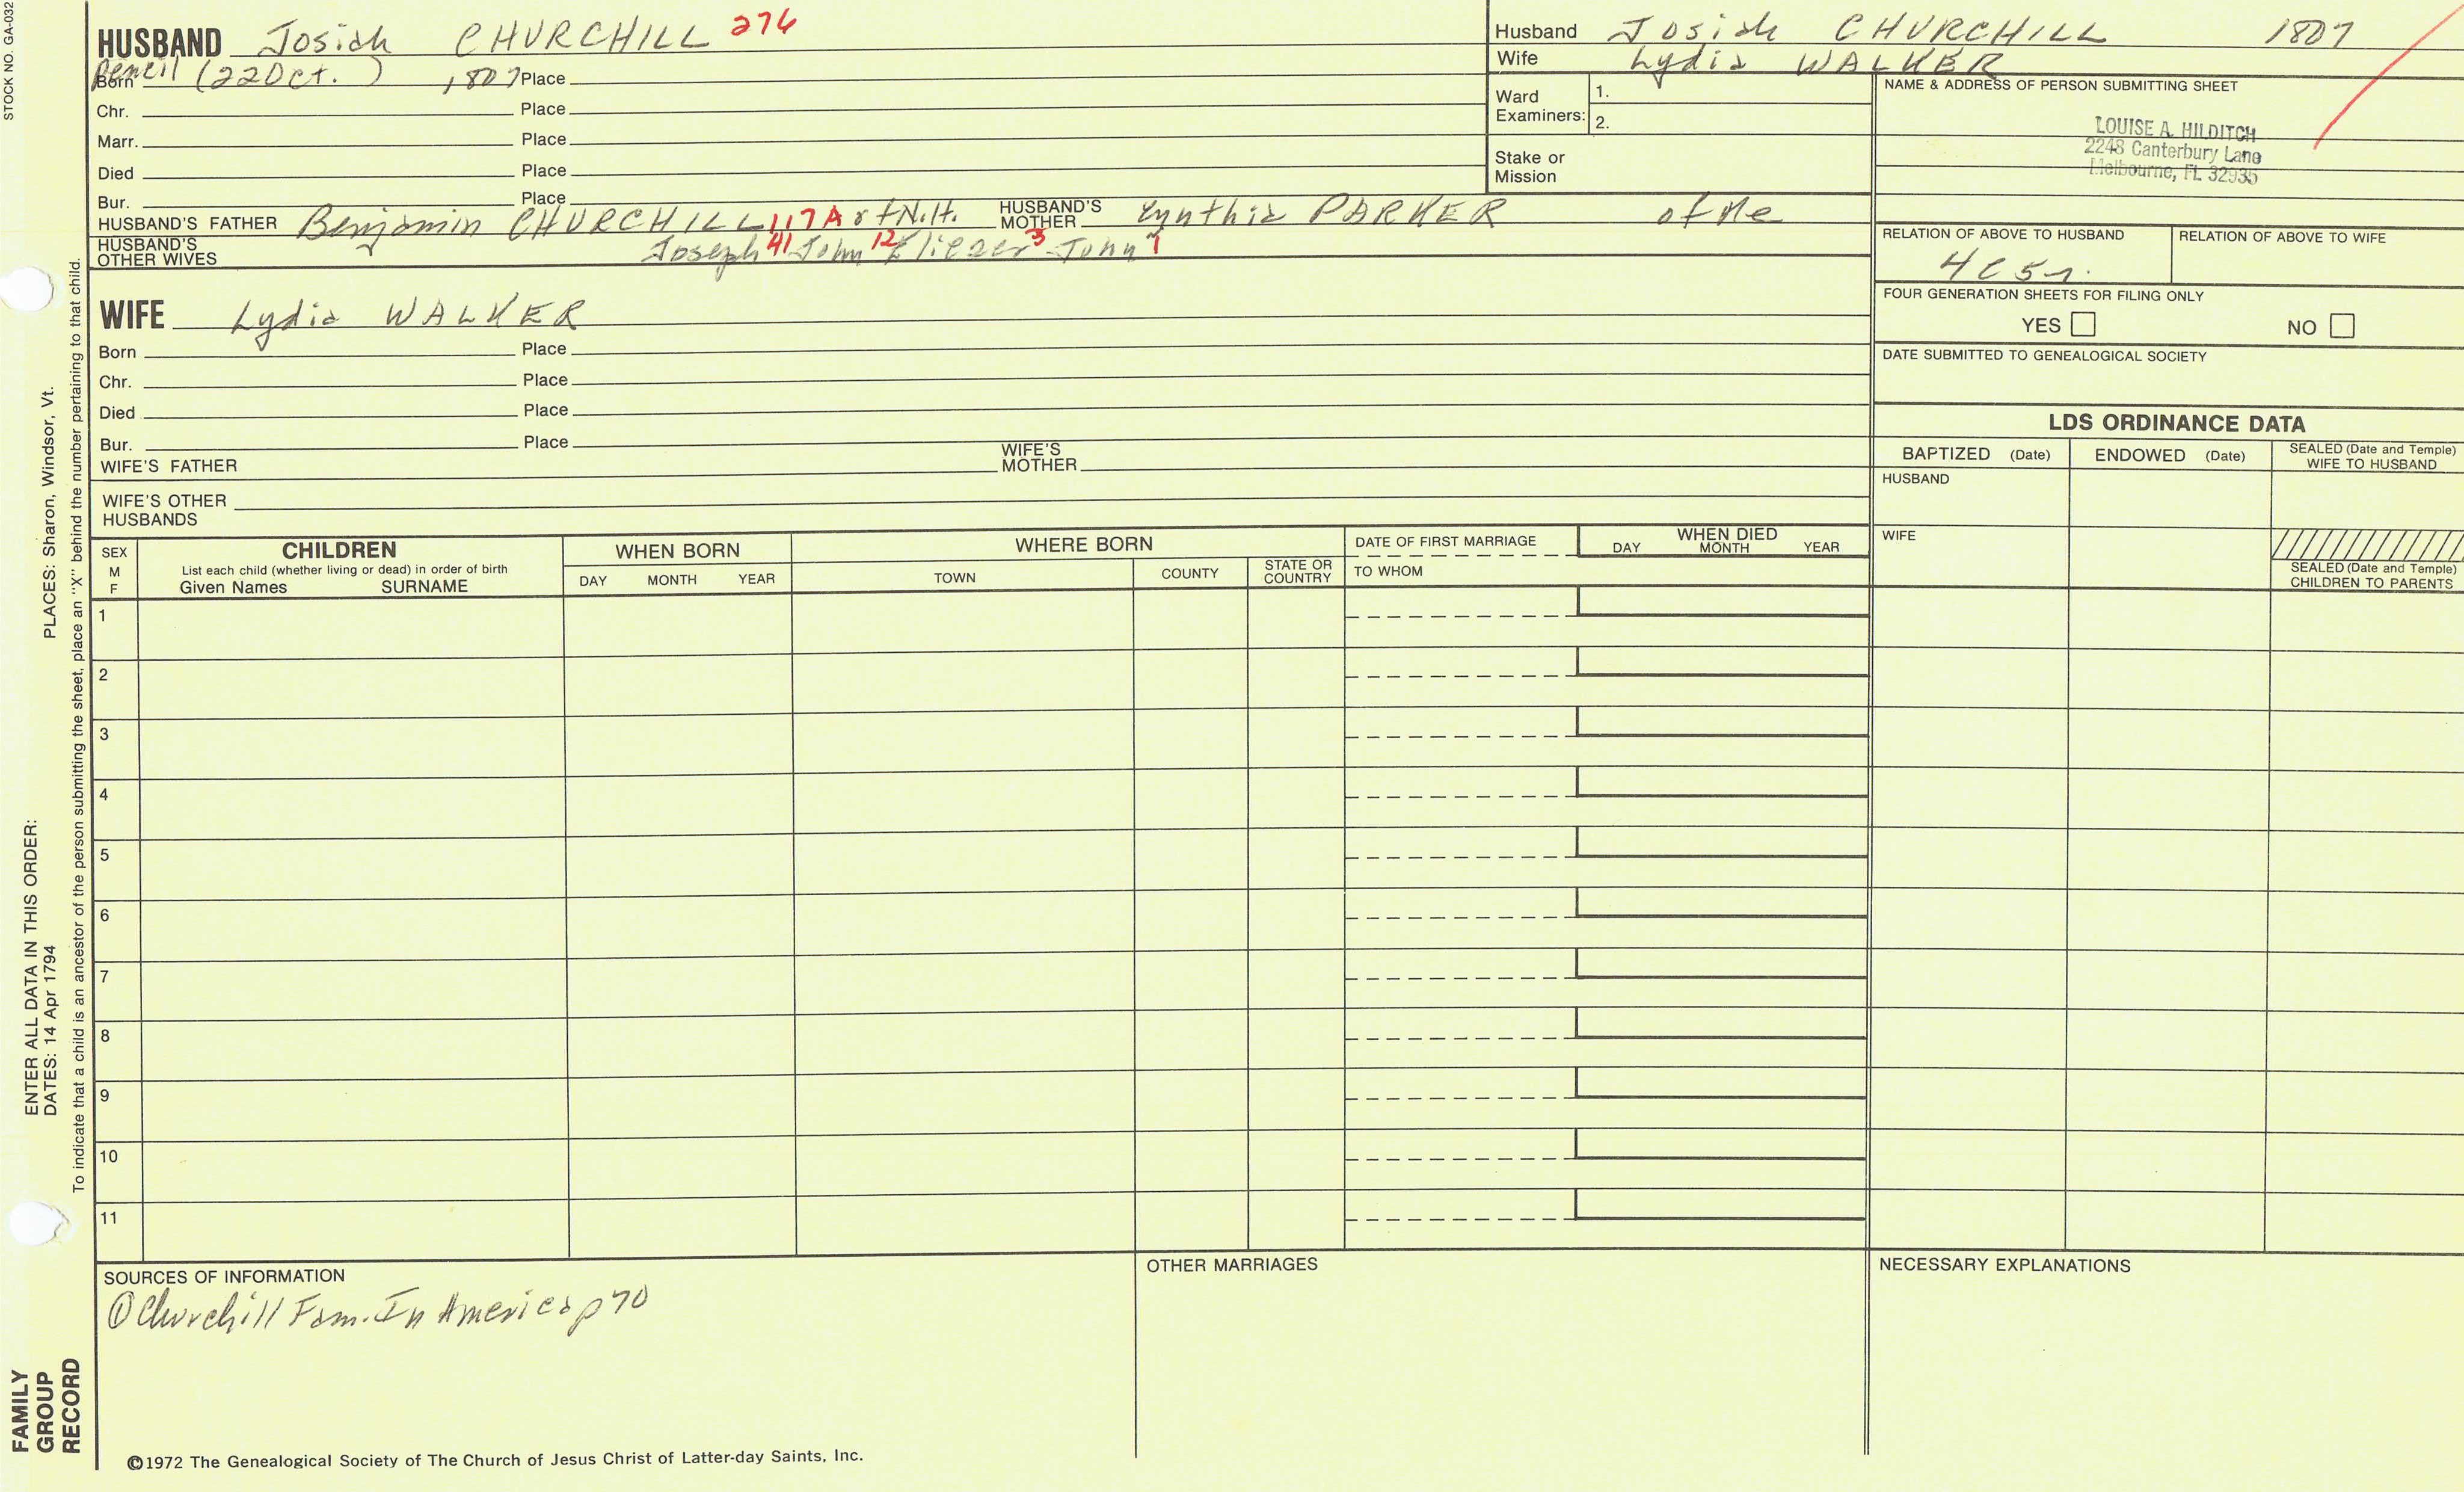 STOCK NO. GA-032
HUSBAND Josiah CHURCHILL 276
Pencil
Born (22 Oct. ) 1807 Place
Chr. Place
Marr. Place
Died Place
Bur. Place
HUSBAND'S FATHER Benjamin CHURCHILL 117A of N.H. HUSBAND'S MOTHER Cynthia PARKER of Me
HUSBAND'S OTHER WIVES Joseph 41 John 12 Eliezer 3 John 1
Husband Josiah CHURCHILL 1807
Wife Lydia WALKER
Ward Examiners: 1.
2.
Stake or Mission
NAME & ADDRESS OF PERSON SUBMITTING SHEET
LOUISE A. HILDITCH
2248 Canterbury Lane
Melbourne, FL 32935
RELATION OF ABOVE TO HUSBAND RELATION OF ABOVE TO WIFE
4C5r.
FOUR GENERATION SHEETS FOR FILING ONLY
YES NO
DATE SUBMITTED TO GENEALOGICAL SOCIETY
WIFE Lydia WALKER
Born Place
Chr. Place
Died Place
Bur. Place
WIFE'S FATHER WIFE'S MOTHER
WIFE'S OTHER HUSBANDS
LDS ORDINANCE DATA
BAPTIZED (Date) ENDOWED (Date) SEALED (Date and Temple) WIFE TO HUSBAND
HUSBAND
WIFE
SEALED (Date and Temple) CHILDREN TO PARENTS
SEX M F
CHILDREN
List each child (whether living or dead) in order of birth
Given Names SURNAME
WHEN BORN
DAY MONTH YEAR
WHERE BORN
TOWN COUNTY STATE OR COUNTRY
DATE OF FIRST MARRIAGE
TO WHOM
WHEN DIED
DAY MONTH YEAR
1
2
3
4
5
6
7
8
9
10
11
SOURCES OF INFORMATION
① Churchill Fam. In America p70
OTHER MARRIAGES
NECESSARY EXPLANATIONS
©1972 The Genealogical Society of The Church of Jesus Christ of Latter-day Saints, Inc.
FAMILY GROUP RECORD
ENTER ALL DATA IN THIS ORDER:
DATES: 14 Apr 1794 PLACES: Sharon, Windsor, Vt.
To indicate that a child is an ancestor of the person submitting the sheet, place an "X" behind the number pertaining to that child.